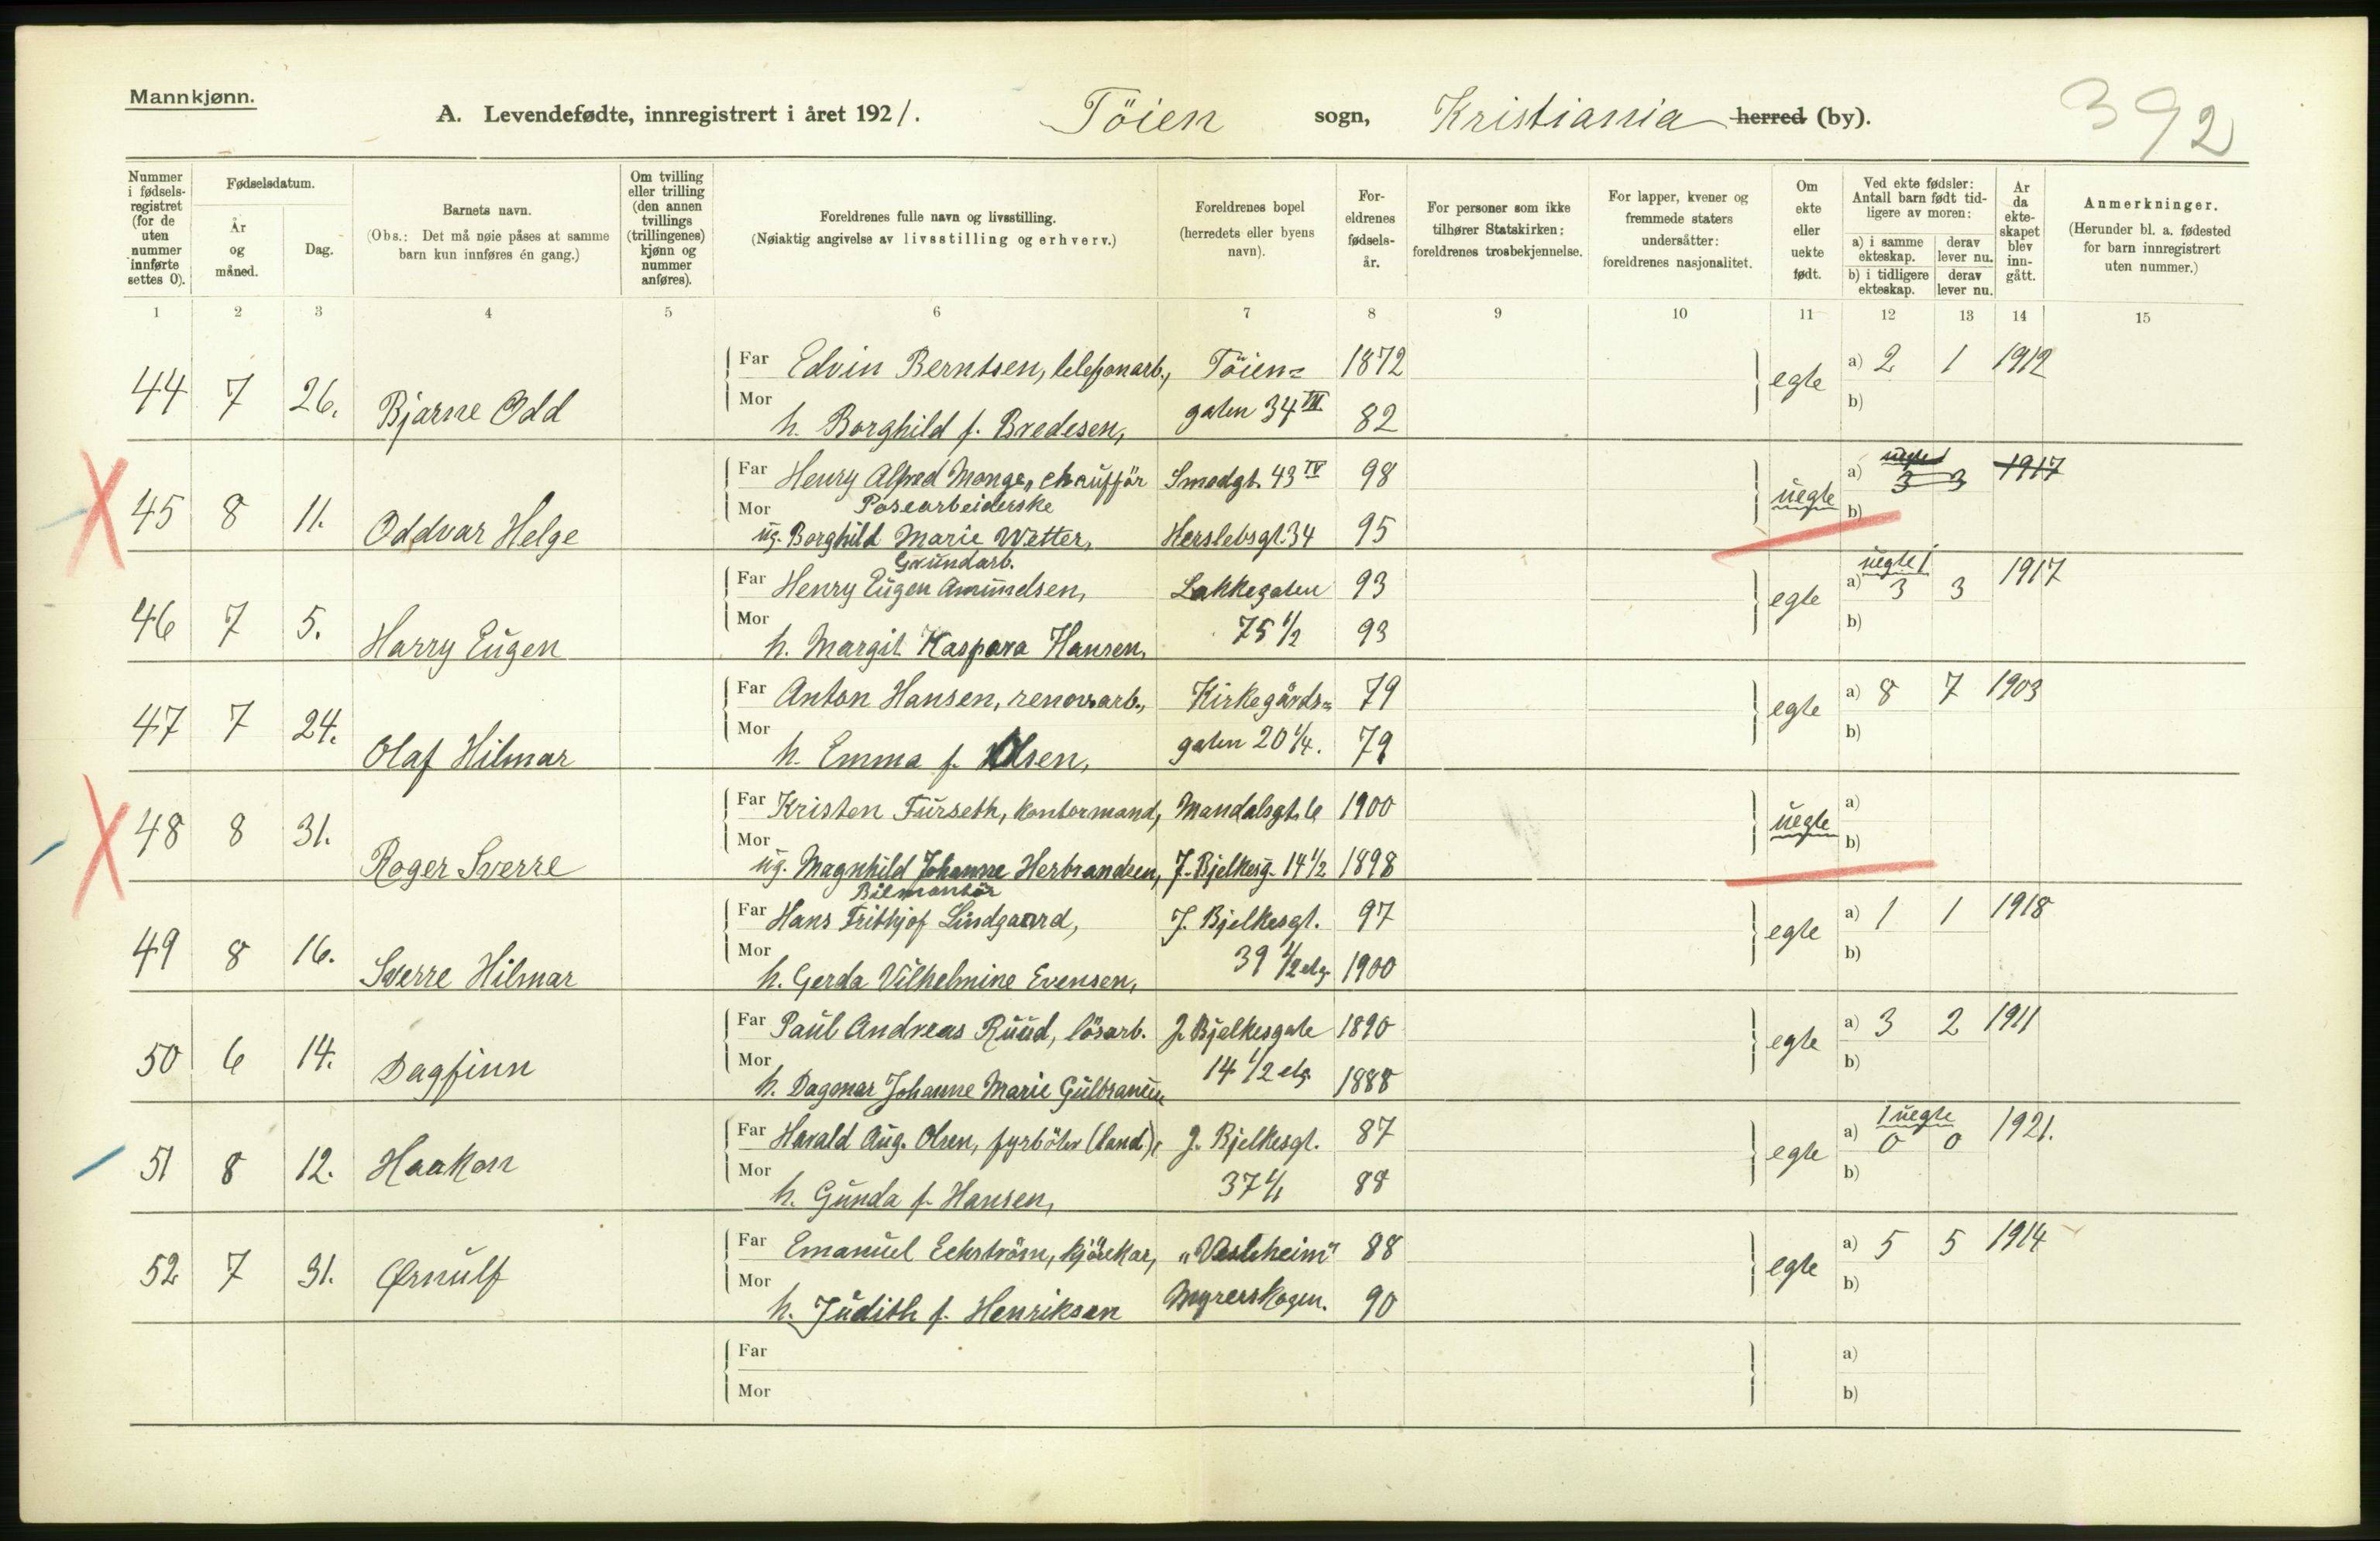 Mannkjønn.
A. Levendefødte, innregistrert i året 1921. Töien sogn, Kristiania herred (by).
392
Nummer i fødselsregistret (for de uten nummer innførte settes 0).
Fødselsdatum.
År og måned.
Dag.
Barnets navn.
(Obs.: Det må nøie påses at samme barn kun innføres én gang.)
Om tvilling eller trilling (den annen tvillings (trillingenes) kjønn og nummer anføres).
Foreldrenes fulle navn og livsstilling.
(Nøiaktig angivelse av livsstilling og erhverv.)
Foreldrenes bopel (herredets eller byens navn).
Foreldrenes fødselsår.
For personer som ikke tilhører Statskirken: foreldrenes trosbekjennelse.
For lapper, kvener og fremmede staters undersåtter: foreldrenes nasjonalitet.
Om ekte eller uekte født.
Ved ekte fødsler: Antall barn født tidligere av moren:
a) i samme ekteskap. derav lever nu.
b) i tidligere ekteskap. derav lever nu.
År da ekteskapet blev inngått.
Anmerkninger.
(Herunder bl. a. fødested for barn innregistrert uten nummer.)
1 2 3 4 5 6 7 8 9 10 11 12 13 14 15
Far Edvin Berntsen, telefonarb., Töien= 1872 a) 2 1 1912
44 7 26. Bjarne Odd egte
Mor h. Borghild f. Bredesen, gaten 34 III 82 b)
Far Henry Alfred Monge, chaufför Smedgt. 43 IV 98 a) uegte 1 3 3 1917
Posearbeiderske
45 8 11. Oddvar Helge uegte
Mor ug. Borghild Marie Wetter, Herslebsgt. 34 95 b)
Grundarb.
Far Henry Eugen Amundsen, Lakkegaten 93 a) uegte 1 3 3 1917
46 7 5. Harry Eugen egte
Mor h. Margit Kaspara Hansen, 75 1/2 93 b)
Far Anton Hansen, renov.arb., Kirkegårds= 79 a) 8 7 1903
47 7 24. Olaf Hilmar egte
Mor h. Emma f. Olsen, gaten 20 1/4. 79 b)
Far Kristen Furseth, kontormand, Mandalsgt. 6 1900 a)
48 8 31. Roger Sverre uegte
Mor ug. Magnhild Johanne Herbrandsen, J. Bjelkesg. 14 1/2 1898 b)
Bilmontör
Far Hans Frithjof Lindgaard, J. Bjelkesgt. 97 a) 1 1 1918
49 8 16. Sverre Hilmar egte
Mor h. Gerda Vilhelmine Evensen, 39 1/2 etg. 1900 b)
Far Paul Andreas Ruud, lösarb. J. Bjelkesgate 1890 a) 3 2 1911
50 6 14. Dagfinn egte
Mor h. Dagmar Johanne Marie Gulbransen 14 1/2 etg. 1888 b)
Far Harald Aug. Olsen, fyrböter (land), J. Bjelkesgt. 87 a) 1 uegte 0 0 1921.
51 8 12. Haakon egte
Mor h. Gunda f. Hansen, 37 1/1 88 b)
Far Emanuel Eckström, kjörekar, „Vestheim" 88 a) 5 5 1914
52 7 31. Ørnulf egte
Mor h. Judith f. Henriksen Myrerskogen. 90 b)
Far a)
Mor b)